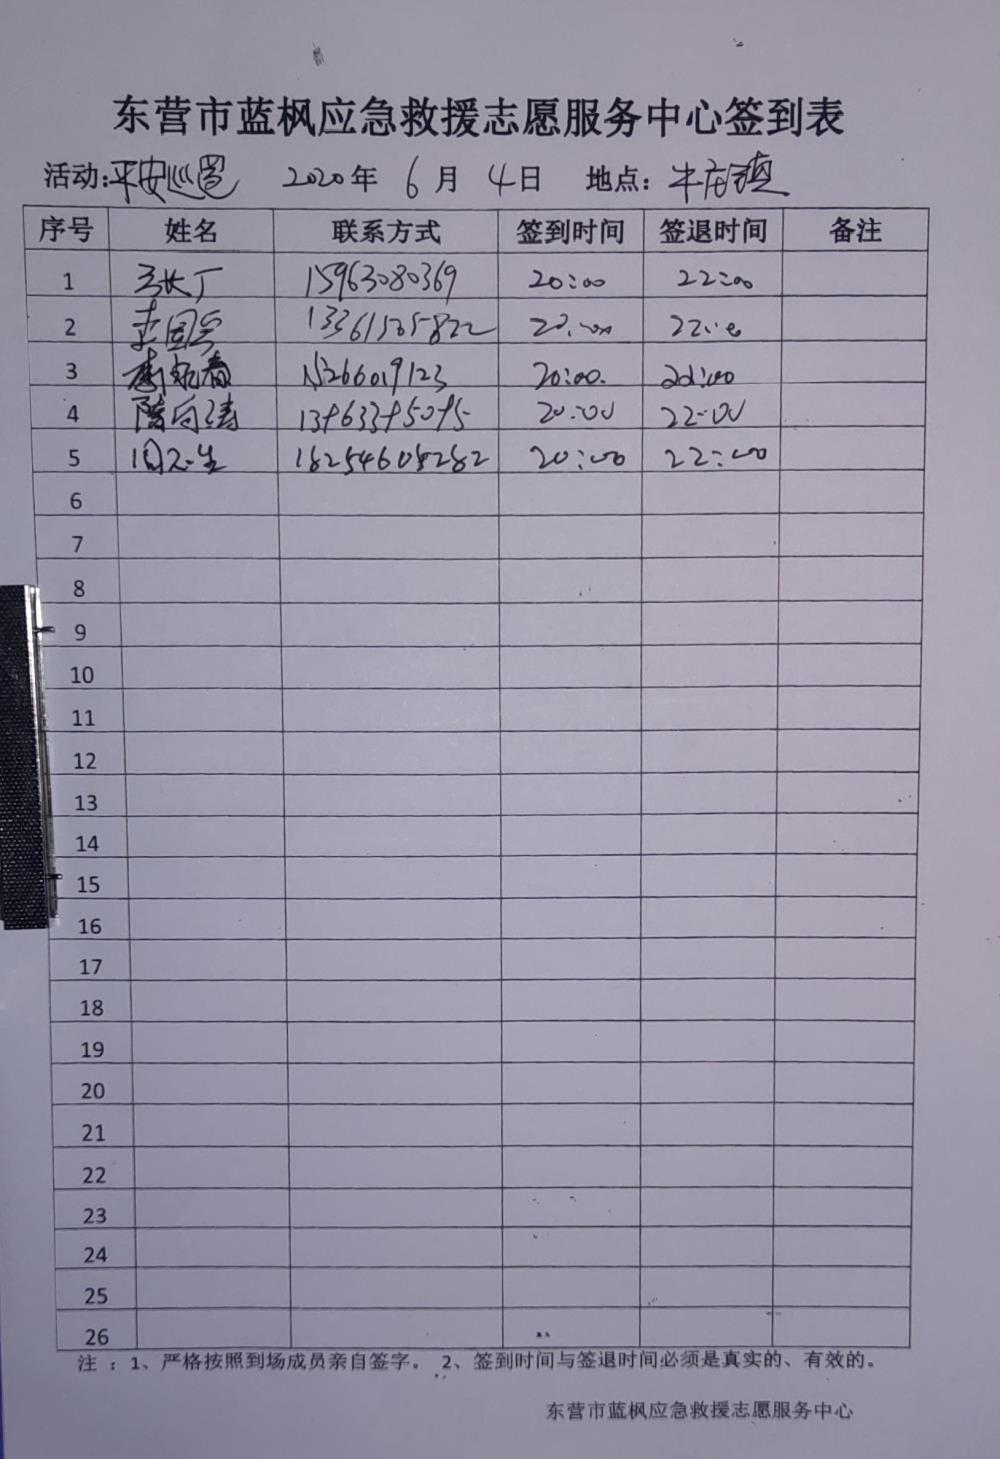 东营市蓝枫应急救援志愿服务中心签到表
活动：平安巡逻 2020年 6月 4日 地点：牛庄镇
序号 姓名 联系方式 签到时间 签退时间 备注
1 15963080369 20:00 22:00
2 李国兵 13361525822 20:00 22:00
3 15266019123 20:00. 22:00
4 陈向涛 20:00 22:00
5 周志生 18254605282 20:00 22:00
6
7
8
9
10
11
12
13
14
15
16
17
18
19
20
21
22
23
24
25
26
注 ：1、严格按照到场成员亲自签字。 2、签到时间与签退时间必须是真实的、有效的。
东营市蓝枫应急救援志愿服务中心